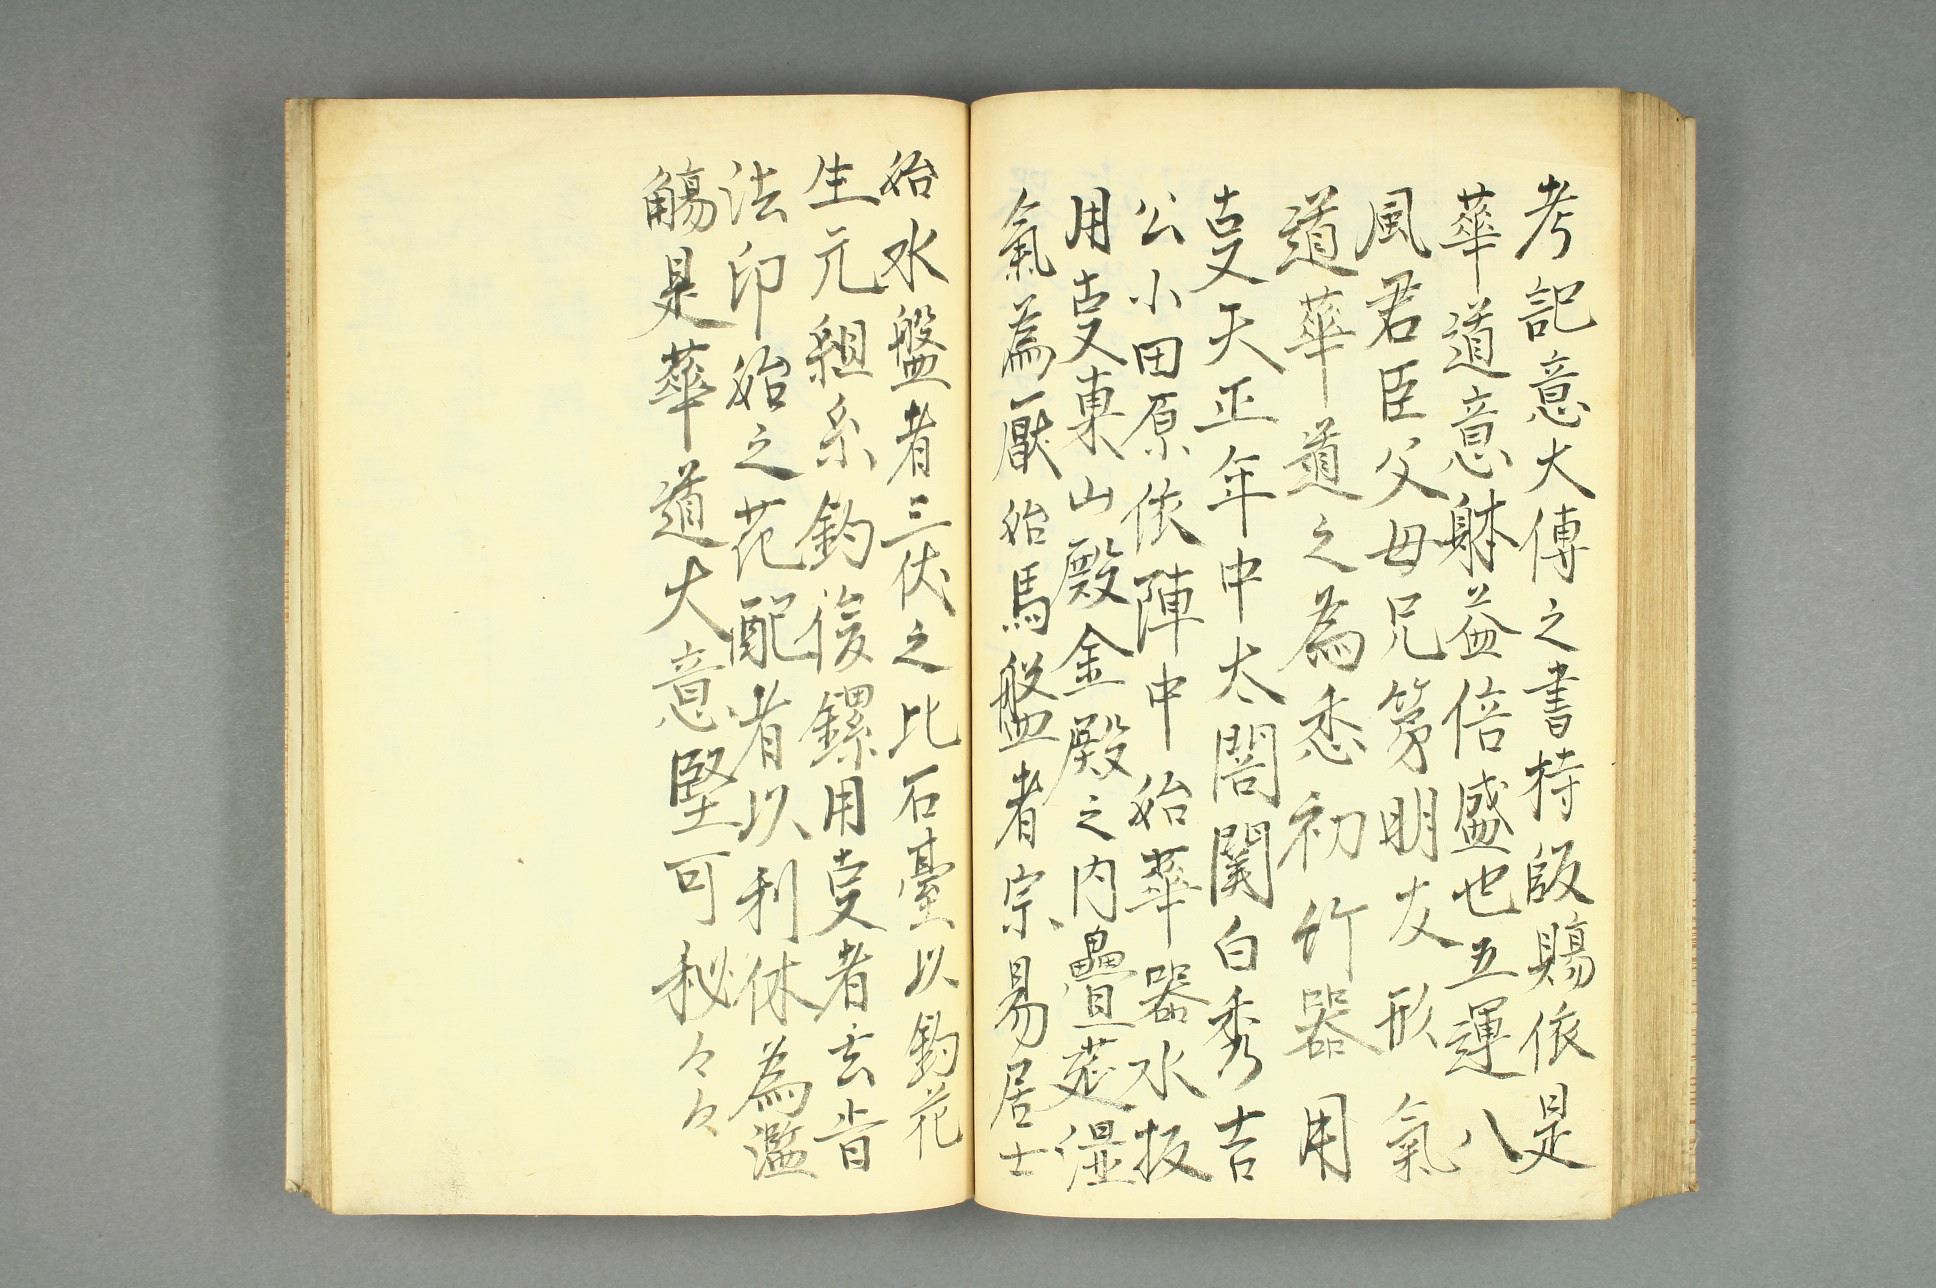 考記意大傳之書持飯賜依是
華道意躰益倍盛也五運八
風君臣父母兄第明友形氣
道華道之為悉初竹器用
㕝天正年中太閤関白秀吉
公小田原依陣中始華器水板
用㕝東山殿金殿之内疊湿
氣為厭始馬盤者宗易居士
始水盤者三伏之比石臺以釣花
生元組糸釣後鏍用㕝者玄旨
法印始之花配者以利休為濫
觴是華道大意堅可秘々々